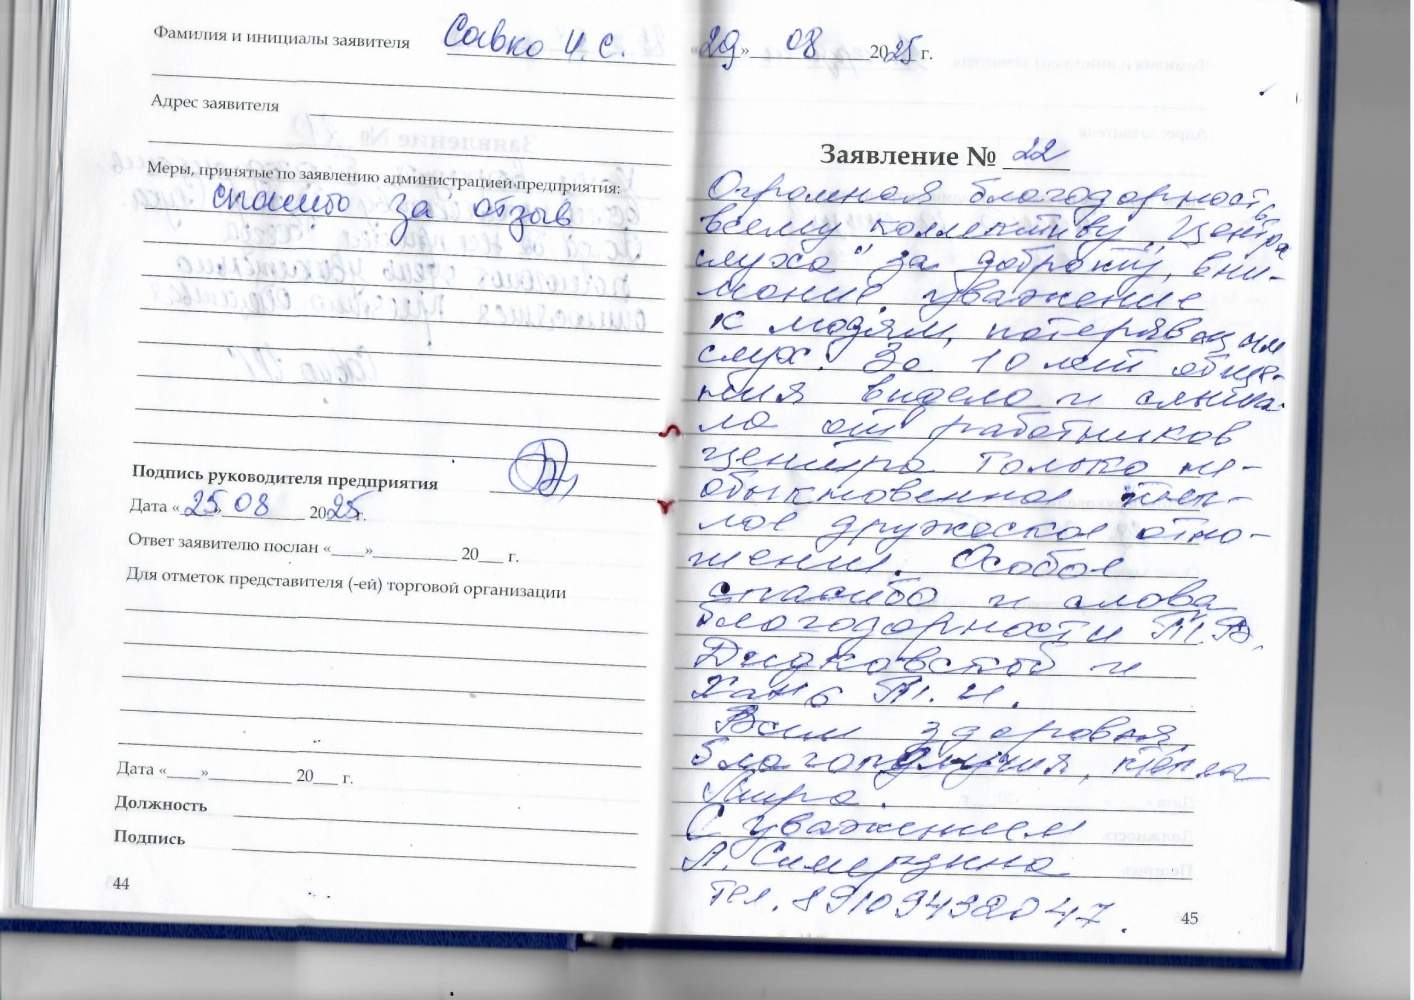 Фамилия и инициалы заявителя Савко И. С.
Адрес заявителя
Меры, принятые по заявлению администрацией предприятия:
спасибо за отзыв
Подпись руководителя предприятия
Дата «25» 08 2025 г.
Ответ заявителю послан «____»__________ 20___ г.
Для отметок представителя (-ей) торговой организации
Дата «____»__________ 20___ г.
Должность
Подпись
44
«29» 08 2025 г.
Заявление № 22
Огромная благодарность
всему коллективу „Центра
слуха" за доброту, вни-
мание, уважение
к людям, потерявшим
слух. За 10 лет обще-
ния видела и слыша-
ла от работников
центра только не-
обыкновенное теп-
лое дружеское отно-
шение. Особое
спасибо и слова
благодарности Т. В.
Дидковской и
Хань Т. И.
Всем здоровья
благополучия, тепла
Мира.
С уважением
А.
тел. 89109438047.
45